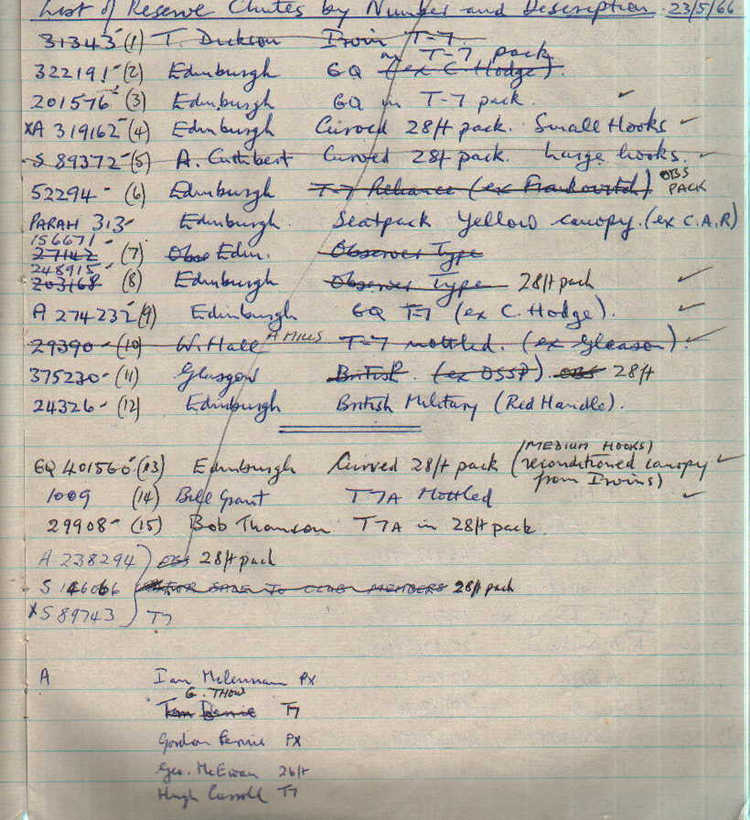 List of Reserve Chutes by Number and Description 23/5/66
31343 (1) T. Dickson Irvin T-7
322191 (2) Edinburgh GQ in T-7 pack (ex C. Hodge).
201576 (3) Edinburgh GQ in T-7 pack. ✓
XA 319162 (4) Edinburgh Curved 28ft pack. Small Hooks ✓
S 89372 (5) A. Cuthbert Curved 28ft pack. Large hooks. ✓
52294 (6) Edinburgh T-7 Reliance (ex Frankovitch) OBS PACK
PARAH 313 Edinburgh. Seatpack Yellow canopy. (ex C.A.R)
156671
27142 (7) Obs Edin. Observer Type
248915
203168 (8) Edinburgh Observer Type 28ft pack ✓
A 274232 (9) Edinburgh GQ T-7 (ex C. Hodge). ✓
29390 (10) W. Hall A MILLS T-7 mottled. (ex Gleason). ✓
375230 (11) Glasgow British. (ex OSSP). OBS 28ft
24326 (12) Edinburgh British Military (Red Handle).
(MEDIUM HOOKS)
GQ 401560 (13) Edinburgh Curved 28ft pack (reconditioned canopy ✓
from Irvins)
1009 (14) Bill Grant T7A Mottled ✓
29908 (15) Bob Thomson T7A in 28ft pack.
A 238294 OBS 28ft pack
S 146066 FOR SALE TO CLUB MEMBERS 28ft pack
XS 89743 T7
A Ian McLennan PX
G. THOW
Tom Rennie T7
Gordon Fernie PX
Geo. McEwan 26ft
Hugh Carroll T7